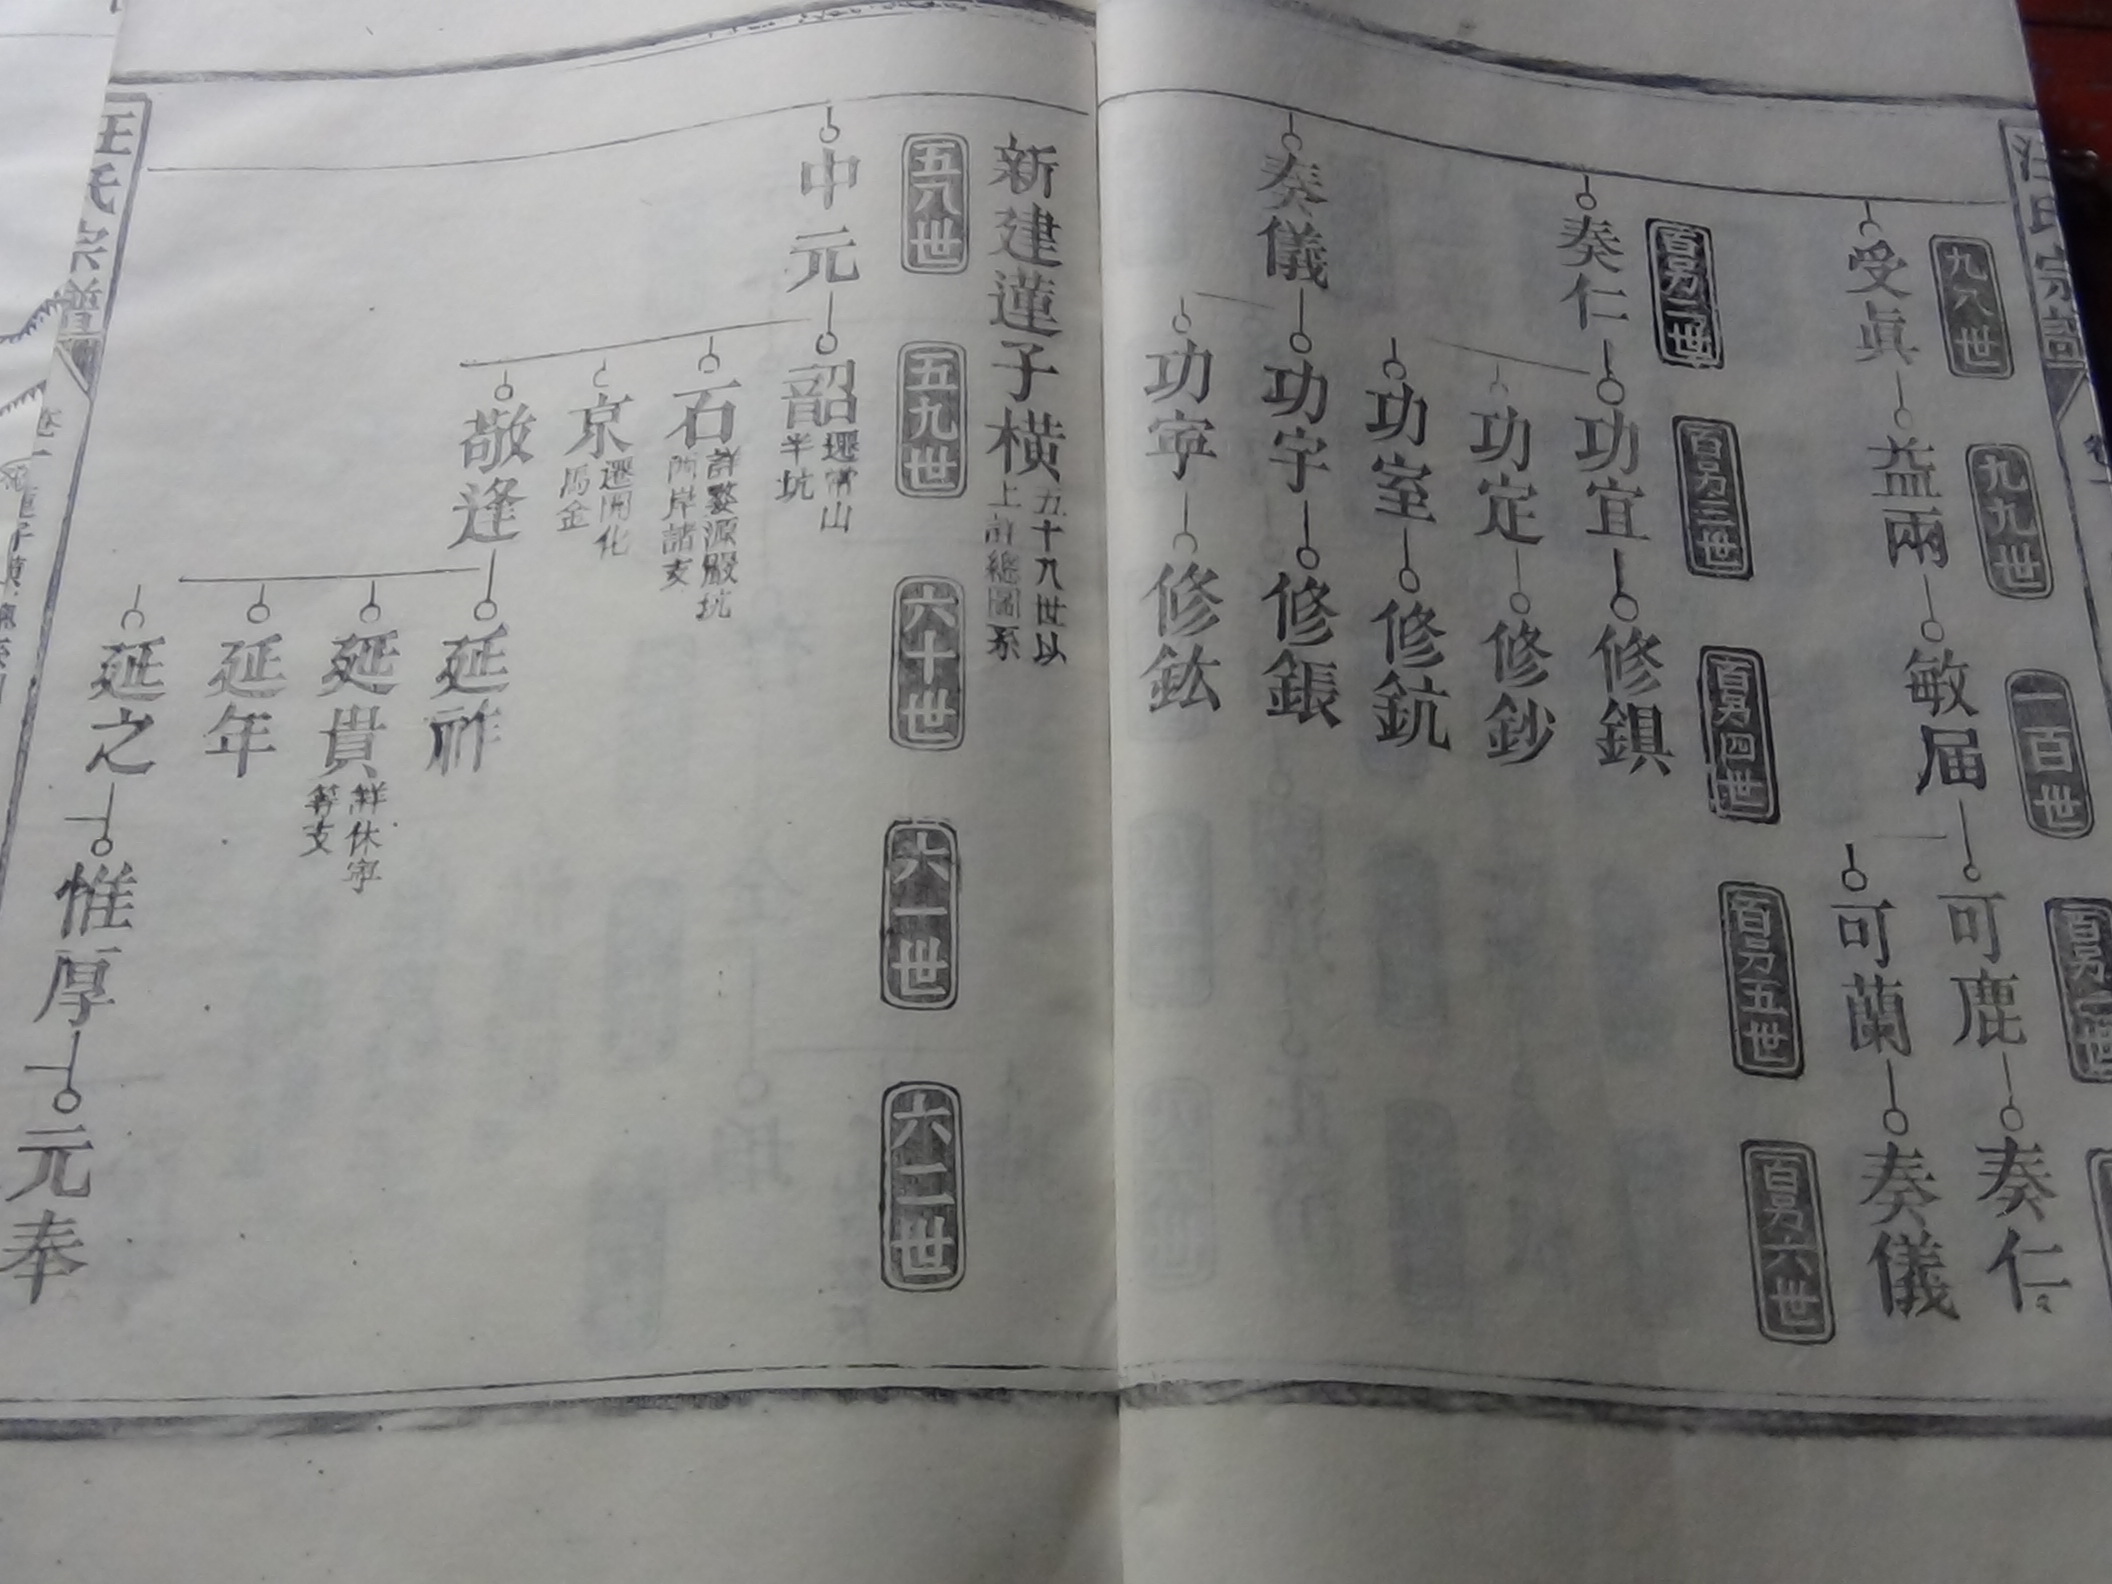 汪氏宗譜
九八世
九九世
一百世
百另一世
受眞
益兩
敏届
可鹿
奏仁
可蘭
奏儀
百另二世
百另三世
百另四世
百另五世
百另六世
奏仁
功宜
修鎖
功定
修鈔
功室
修鈧
奏儀
功宇
修鋹
功寧
修鈜
新建蓮子橫
五十九世以
上詳總圖系
五八世
五九世
六十世
六一世
六二世
中元
韶
遷常山
羊坑
石
詳婺源嚴坑
兩岸諸支
京
遷開化
馬金
敬逢
延祚
延貴
詳休寧
等支
延年
延之
惟厚
元奉
汪氏宗譜